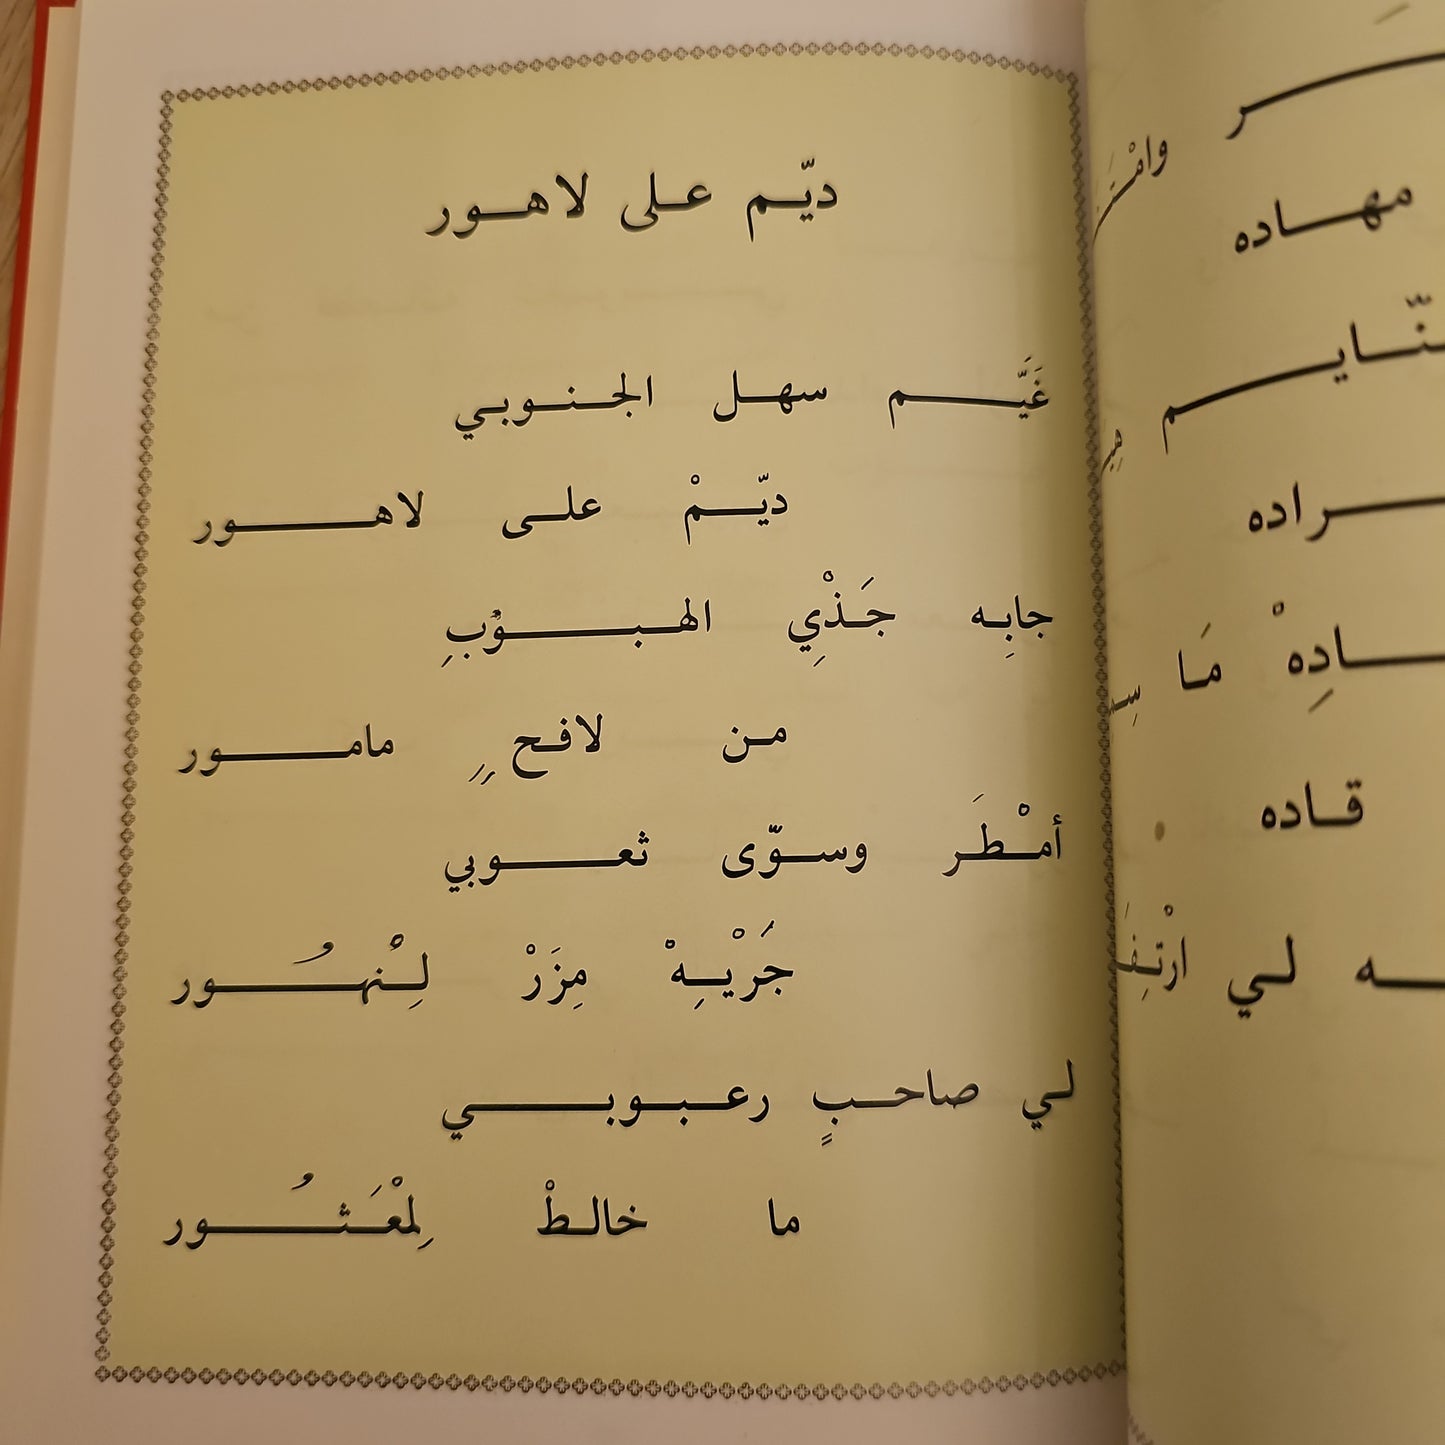 ديّم على لاهور
غَيَّم سهل الجنوبي
ديّمْ على لاهور
جابِه جَذْيِ الهبوْبِ
من لافحٍ مامور
أمْطَر وسوّى ثعوبي
جَرْيِهْ مِزَرْ لِنْهُور
لي صاحبٍ رعبوبي
ما خالطْ لِمْعَثُور
مهاده
قاده
مَا
ـه لي ارْتِفَ